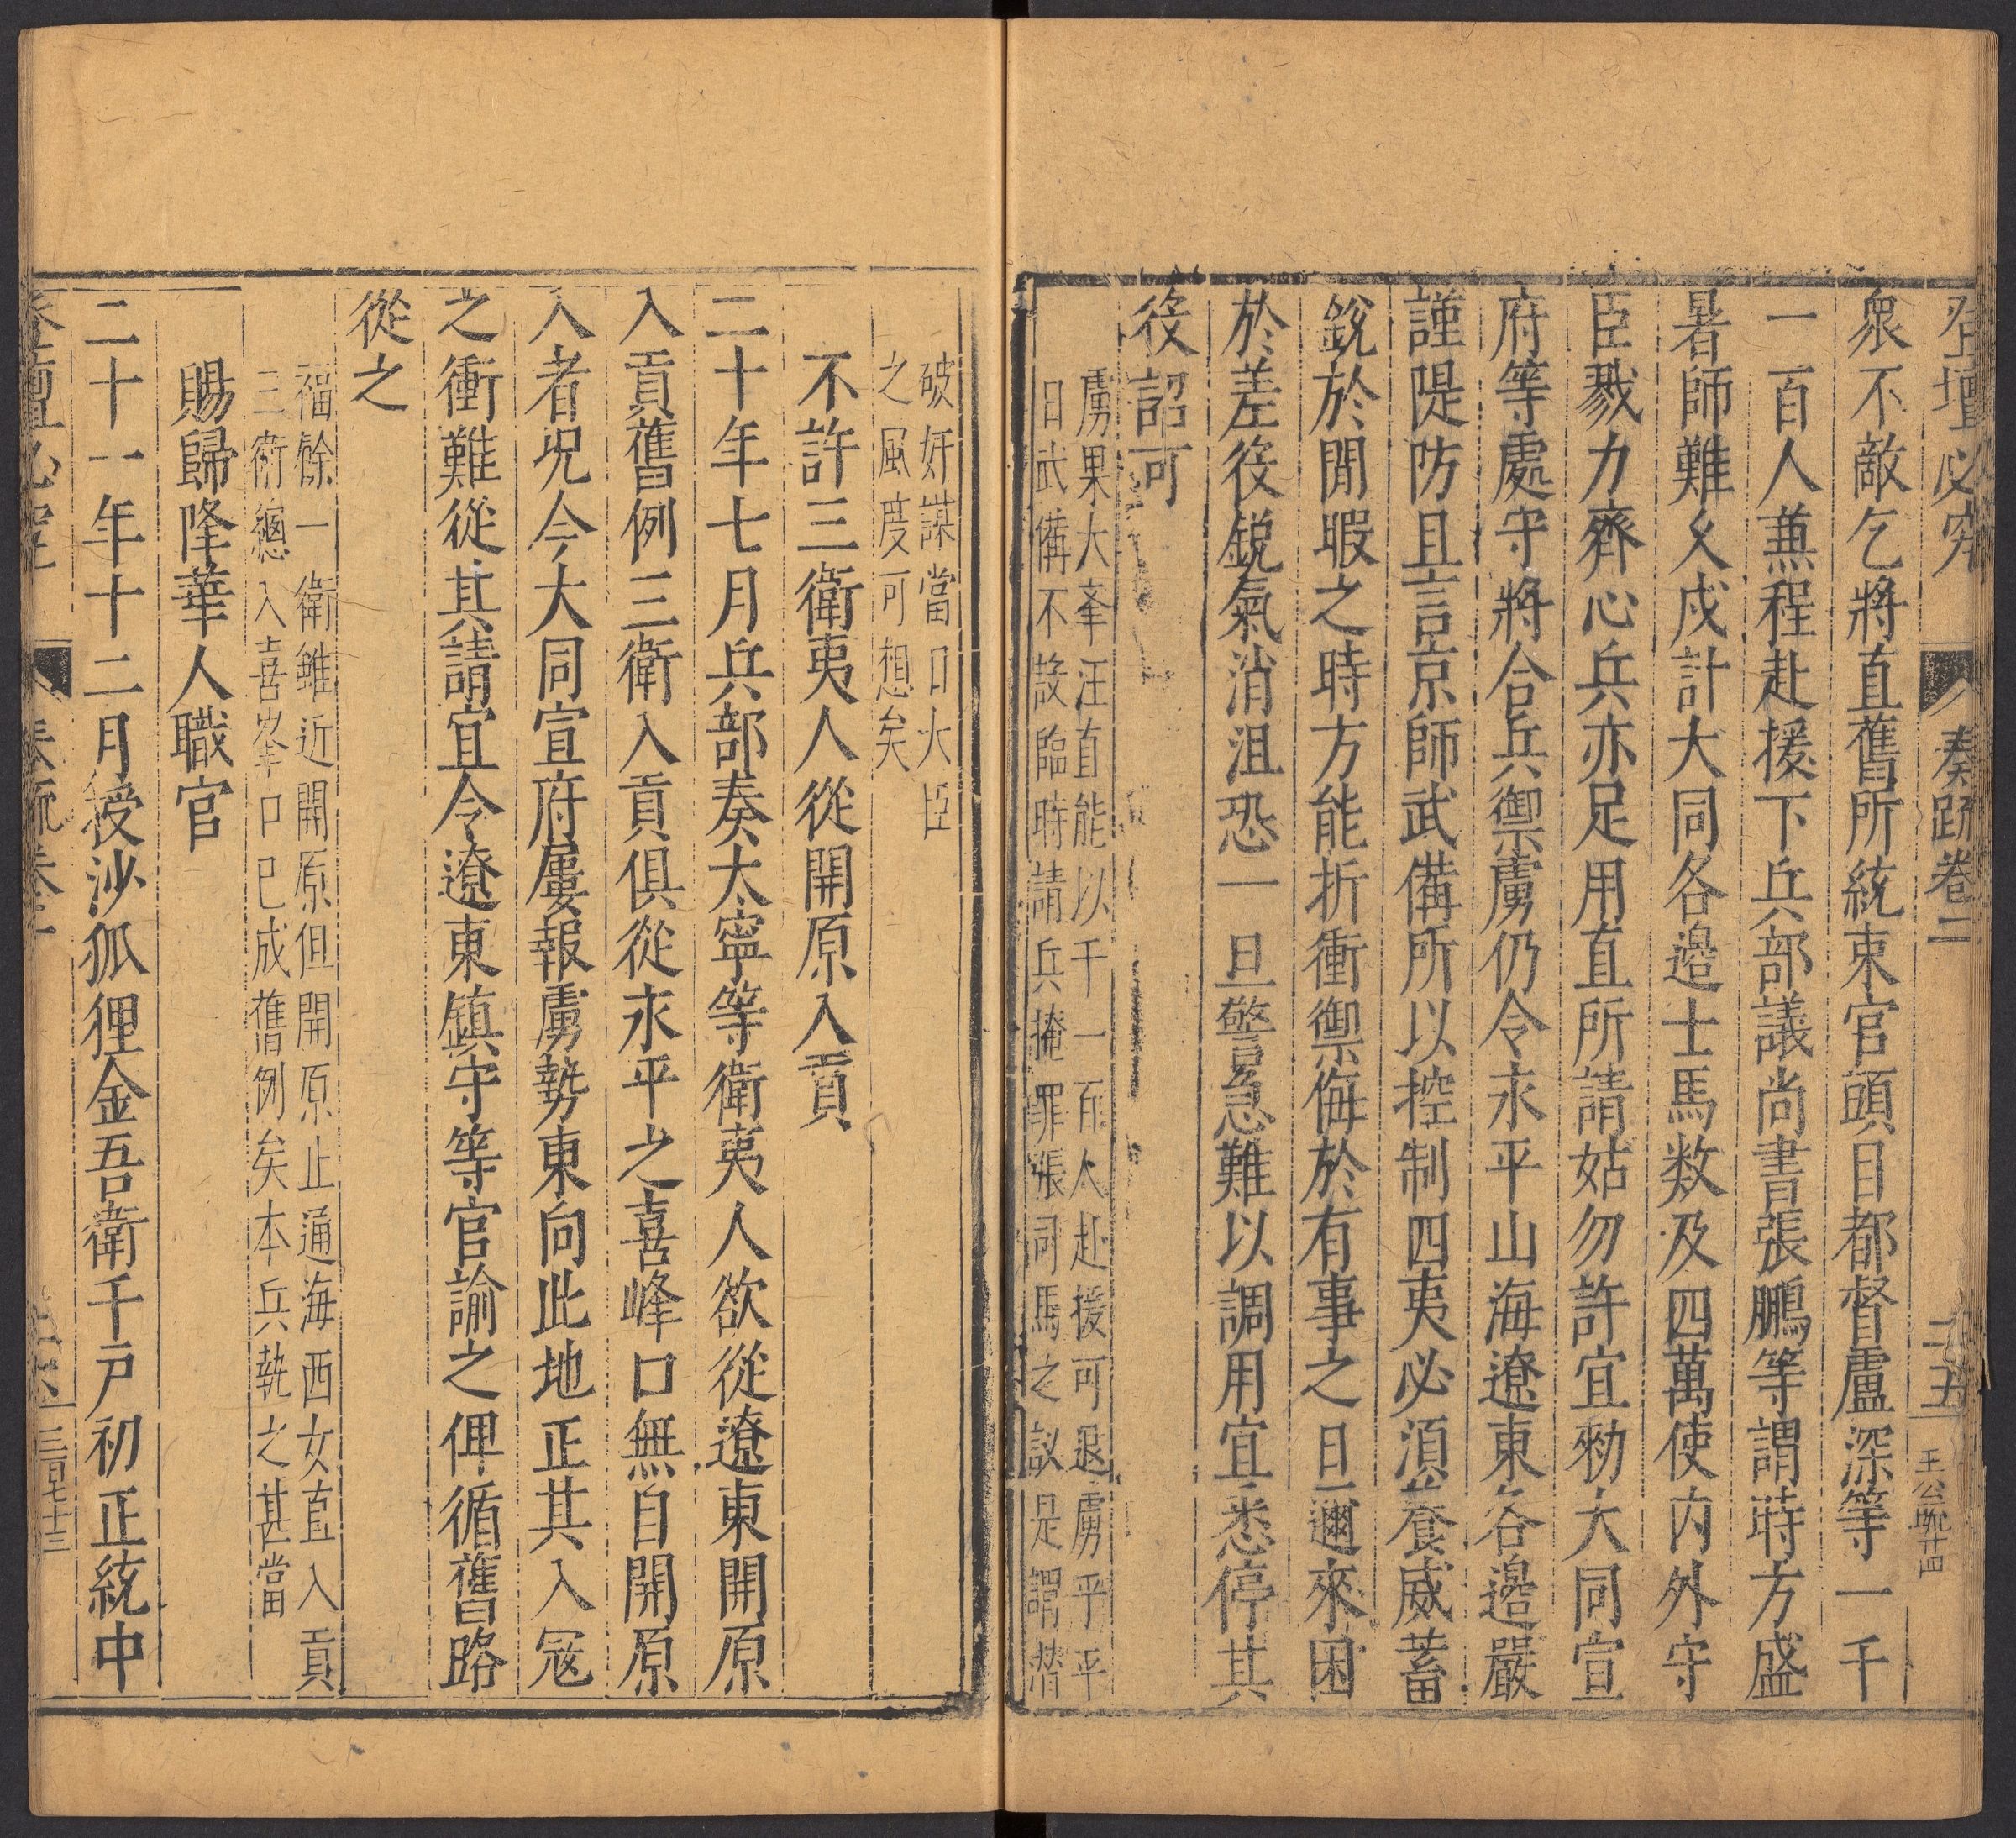 登壇必究 奏疏卷二 二五 王公疏廿四
衆不敵乞將直舊所統束官頭目都督盧深等一千
一百人兼程赴援下兵部議尚書張鵬等謂時方盛
暑師難久戍計大同各邉士馬数及四萬使内外守
臣戮力齊心兵亦足用直所請姑勿許宜勑大同宣
府等處守將合兵禦虜仍令永平山海遼東各邉嚴
謹隄防且言京師武備所以控制四夷必湏養威蓄
銳於閒暇之時方能折衝禦侮於有事之旦邇來困
於差役銳氣消沮恐一旦警急難以調用宜悉停其
役詔可
虜果大牽汪直能以千一百人赴援可退虜乎平
日武備不設臨時請兵掩罪張司馬之議是謂潜
破奸謀當日大臣
之風度可想矣
不許三衛夷人從開原入貢
二十年七月兵部奏太寧等衛夷人欲從遼東開原
入貢舊例三衛入貢俱從永平之喜峰口無自開原
入者况今大同宣府屢報虜勢東向此地正其入冦
之衝難從其請宜令遼東鎮守等官諭之俾循舊路
從之
福餘一衛雖近開原但開原止通海西女直入貢
三衛總入喜峯口已成舊例矣本兵執之甚當
賜歸降華人職官
二十一年十二月授沙狐狸金吾衛千戸初正統中
登壇必究 奏疏卷二 三百七十三